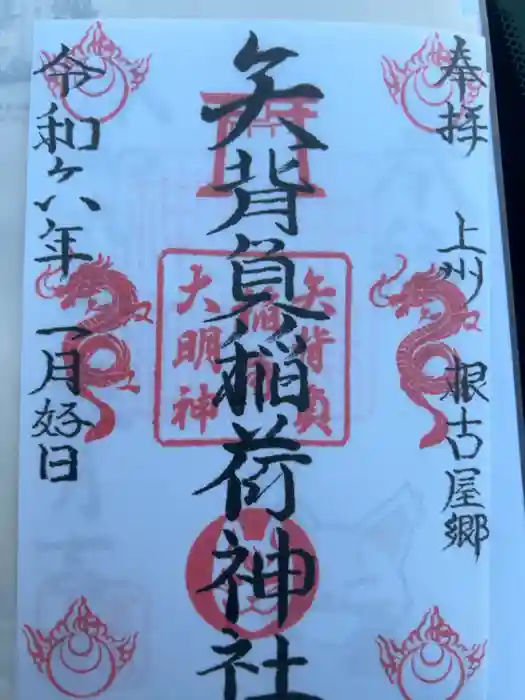 奉拝
上州 根古屋郷
矢背負稲荷神社
矢背負
稲荷
大明神
令和六年 一月好日